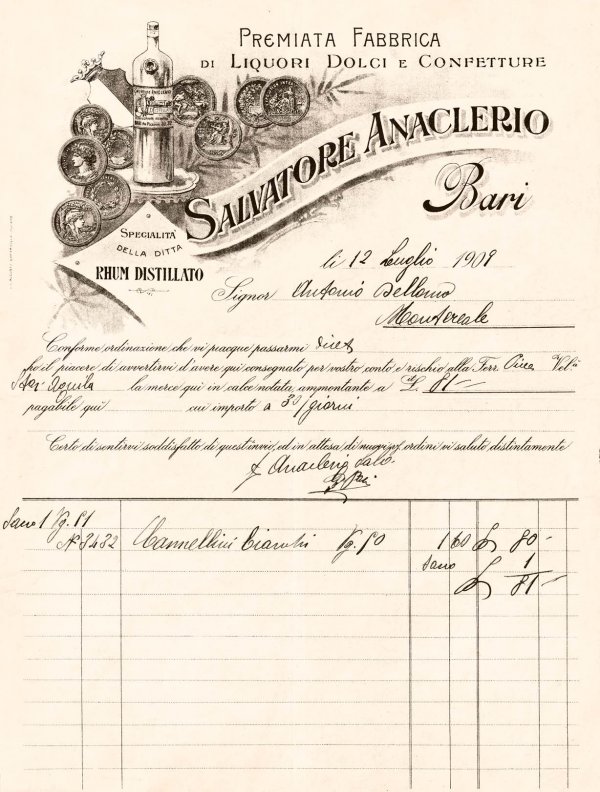 PREMIATA FABBRICA
DI LIQUORI DOLCI E CONFETTURE
SALVATORE ANACLERIO
Bari
SPECIALITÀ
DELLA DITTA
RHUM DISTILLATO
li 12 Luglio 1909
Signor Antonio Dellomo
Montereale
Conforme ordinazione, che vi piacque passarmi
ho il piacere di avvertirvi d'avere qui consegnato per vostro conto e rischio alla Ferr. Picca Vel.à
Staz. Aquila la merce qui in calce notata, ammontante a £. 81-
pagabile qui cui importo a 30/giorni
Certo di sentirvi soddisfatto di quest'invio, ed in attesa di nuovi vs/ ordini vi saluto distintamente
Anaclerio Salv.
Bari
Sacco 1 Kg. 51
N. 3432 Cannellini bianchi Kg. 50 1 60 £ 80-
Sacco 1
£ 81-